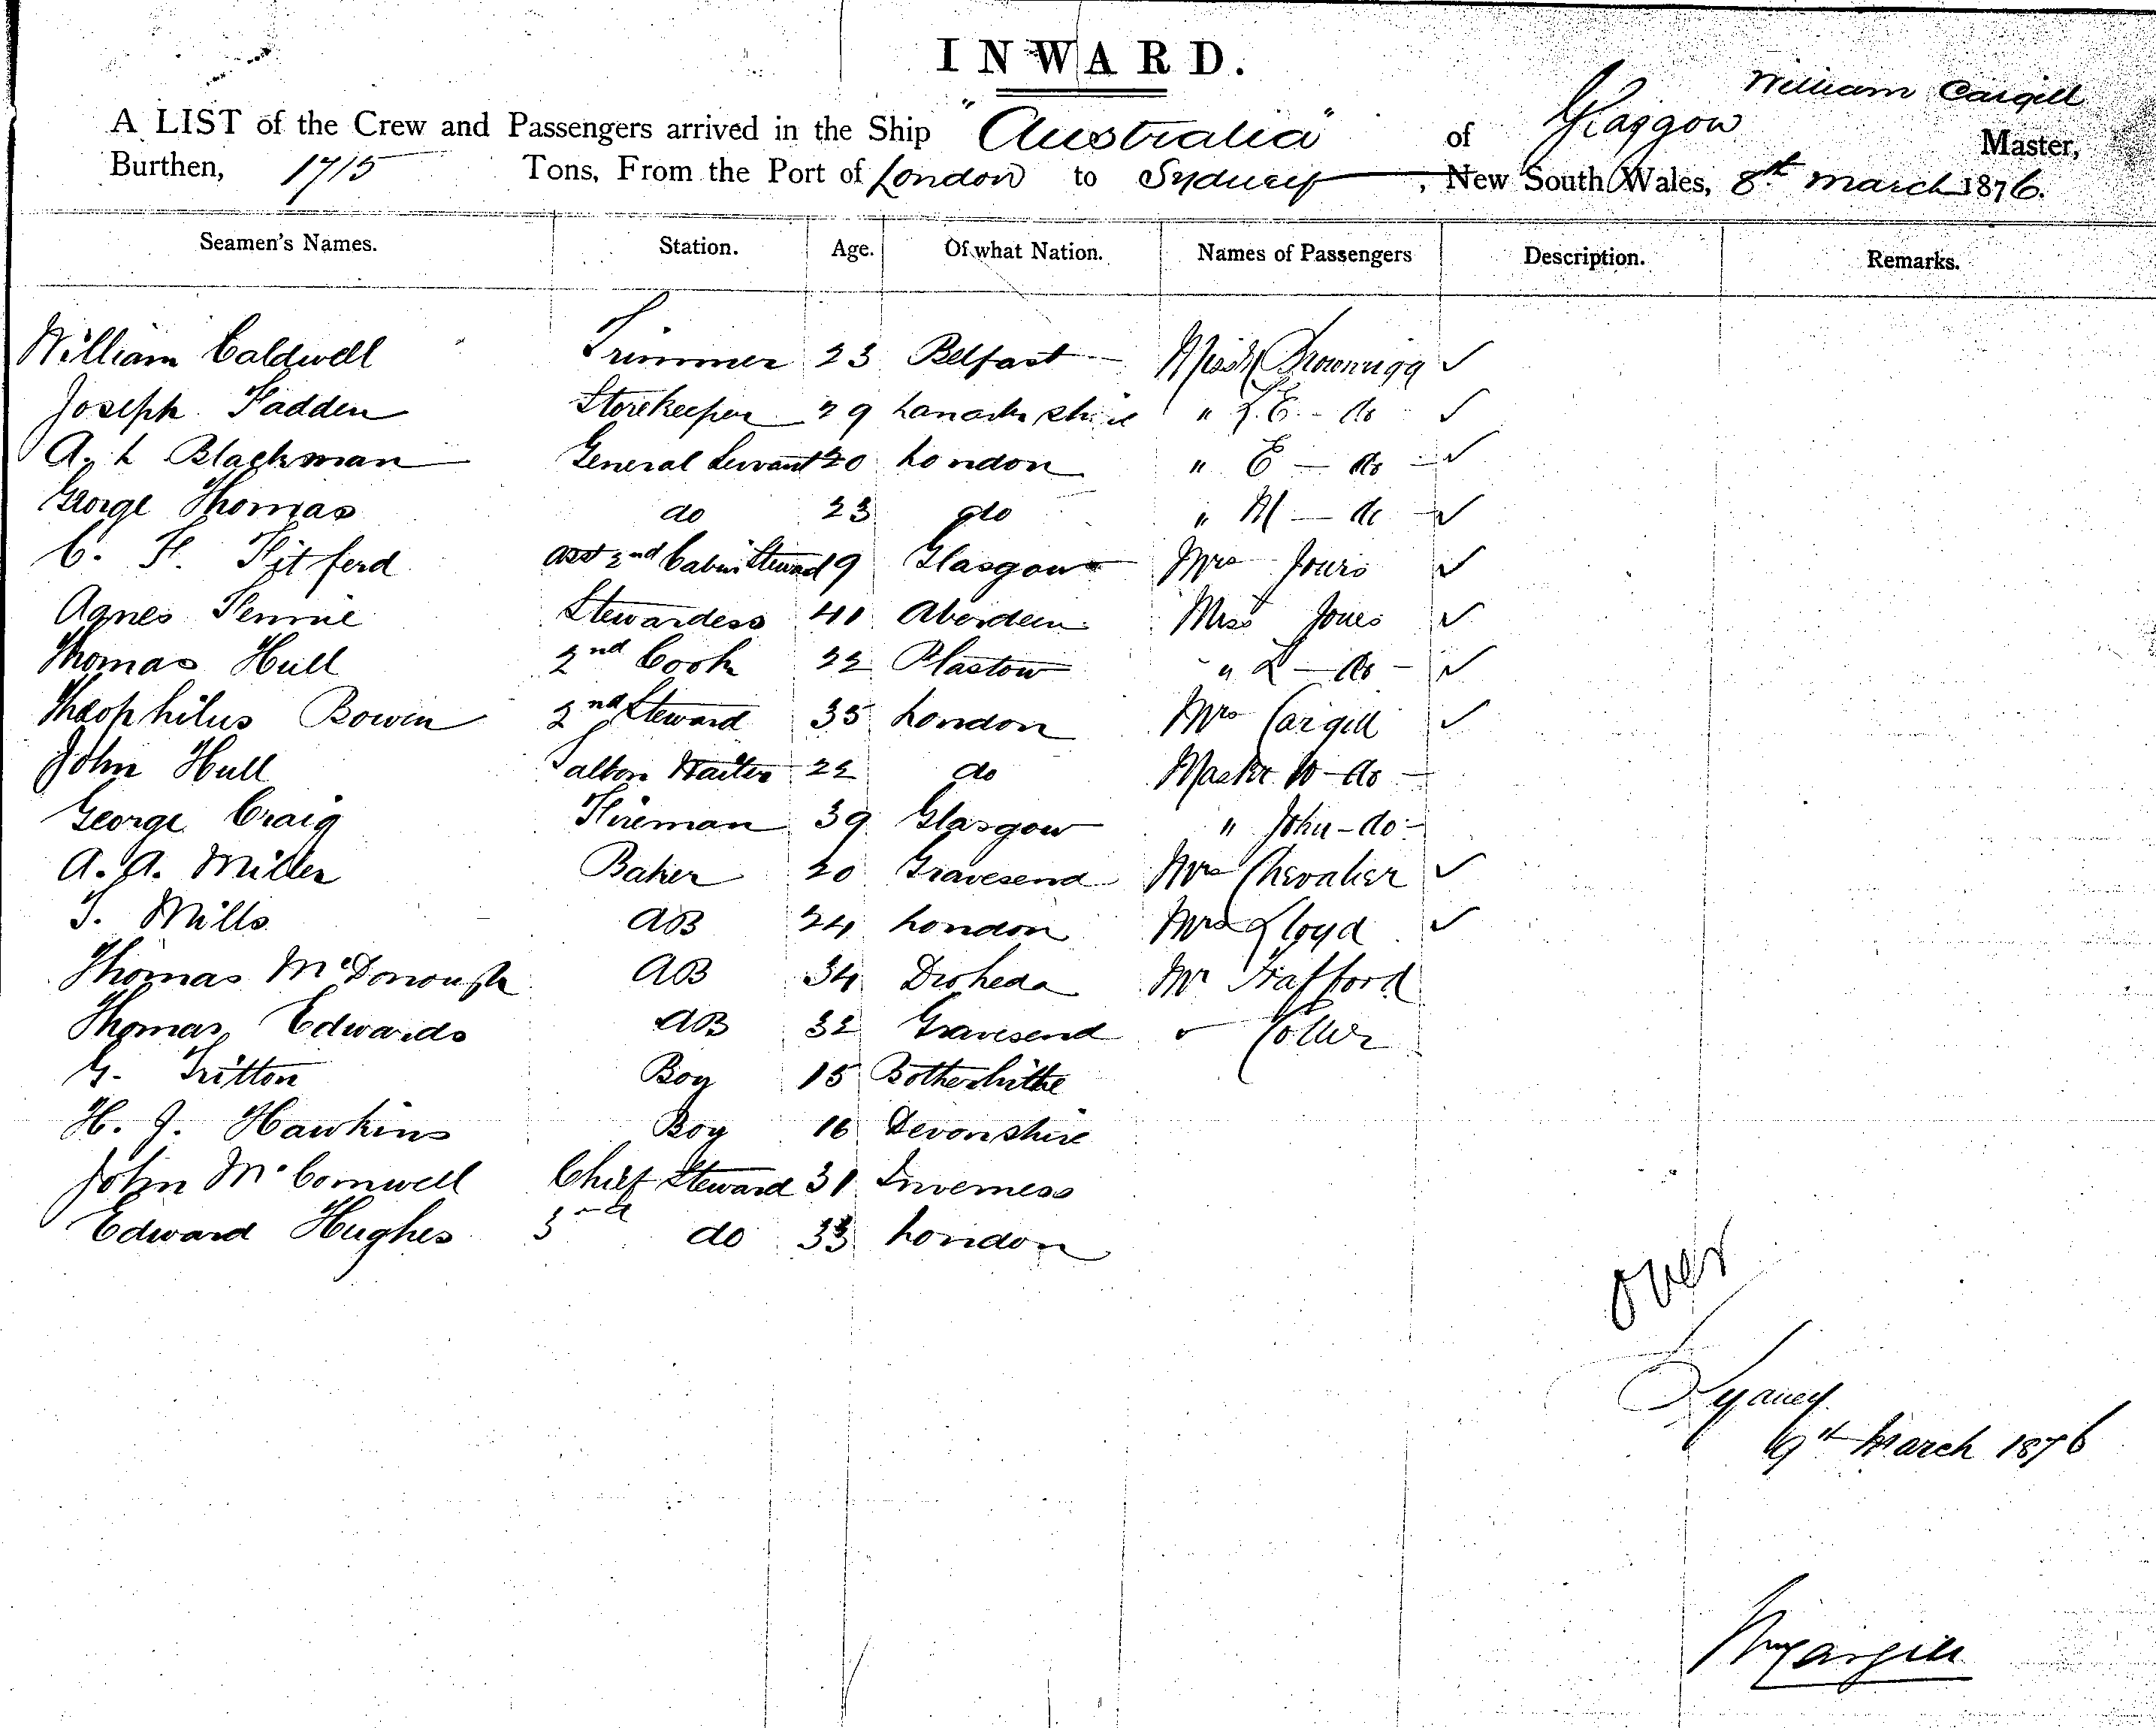 INWARD.
William Cargill
A LIST of the Crew and Passengers arrived in the Ship "Australia" of Glasgow Master,
Burthen, 1715 Tons, From the Port of London to Sydney, New South Wales, 8th March 1876.
Seamen's Names. Station. Age. Of what Nation. Names of Passengers Description. Remarks.
William Caldwell Trimmer 23 Belfast Miss Brownrigg ✓
Joseph Fadden Storekeeper 29 Lanarkshire " L. E. - do ✓
A. L Blackman General Servant 20 London " E - do - ✓
George Thomas do 23 do " M - do - ✓
C. F. Pitferd Asst 2nd Cabin Steward 19 Glasgow Mrs Jones ✓
Agnes Rennie Stewardess 41 Aberdeen Miss Jones ✓
Thomas Hull 2nd Cook 22 Plastow " L - do - ✓
Theophilus Bowen 2nd Steward 35 London Mrs Cargill ✓
John Hull Saloon Waiter 22 do Master W - do -
George Craig Fireman 39 Glasgow " John - do -
A. A. Miller Baker 20 Gravesend Mrs Chevalier ✓
T. Mills AB 24 London Mrs Lloyd ✓
Thomas McDonough AB 34 Droheda Mr Trafford
Thomas Edwards AB 32 Gravesend
G. Tritton Boy 15 Botherhithe
H. J. Hawkins Boy 16 Devonshire
John McComwell Chief Steward 31 Inverness
Edward Hughes 3rd do 33 London
over
Sydney
9th March 1876
Wm Cargill